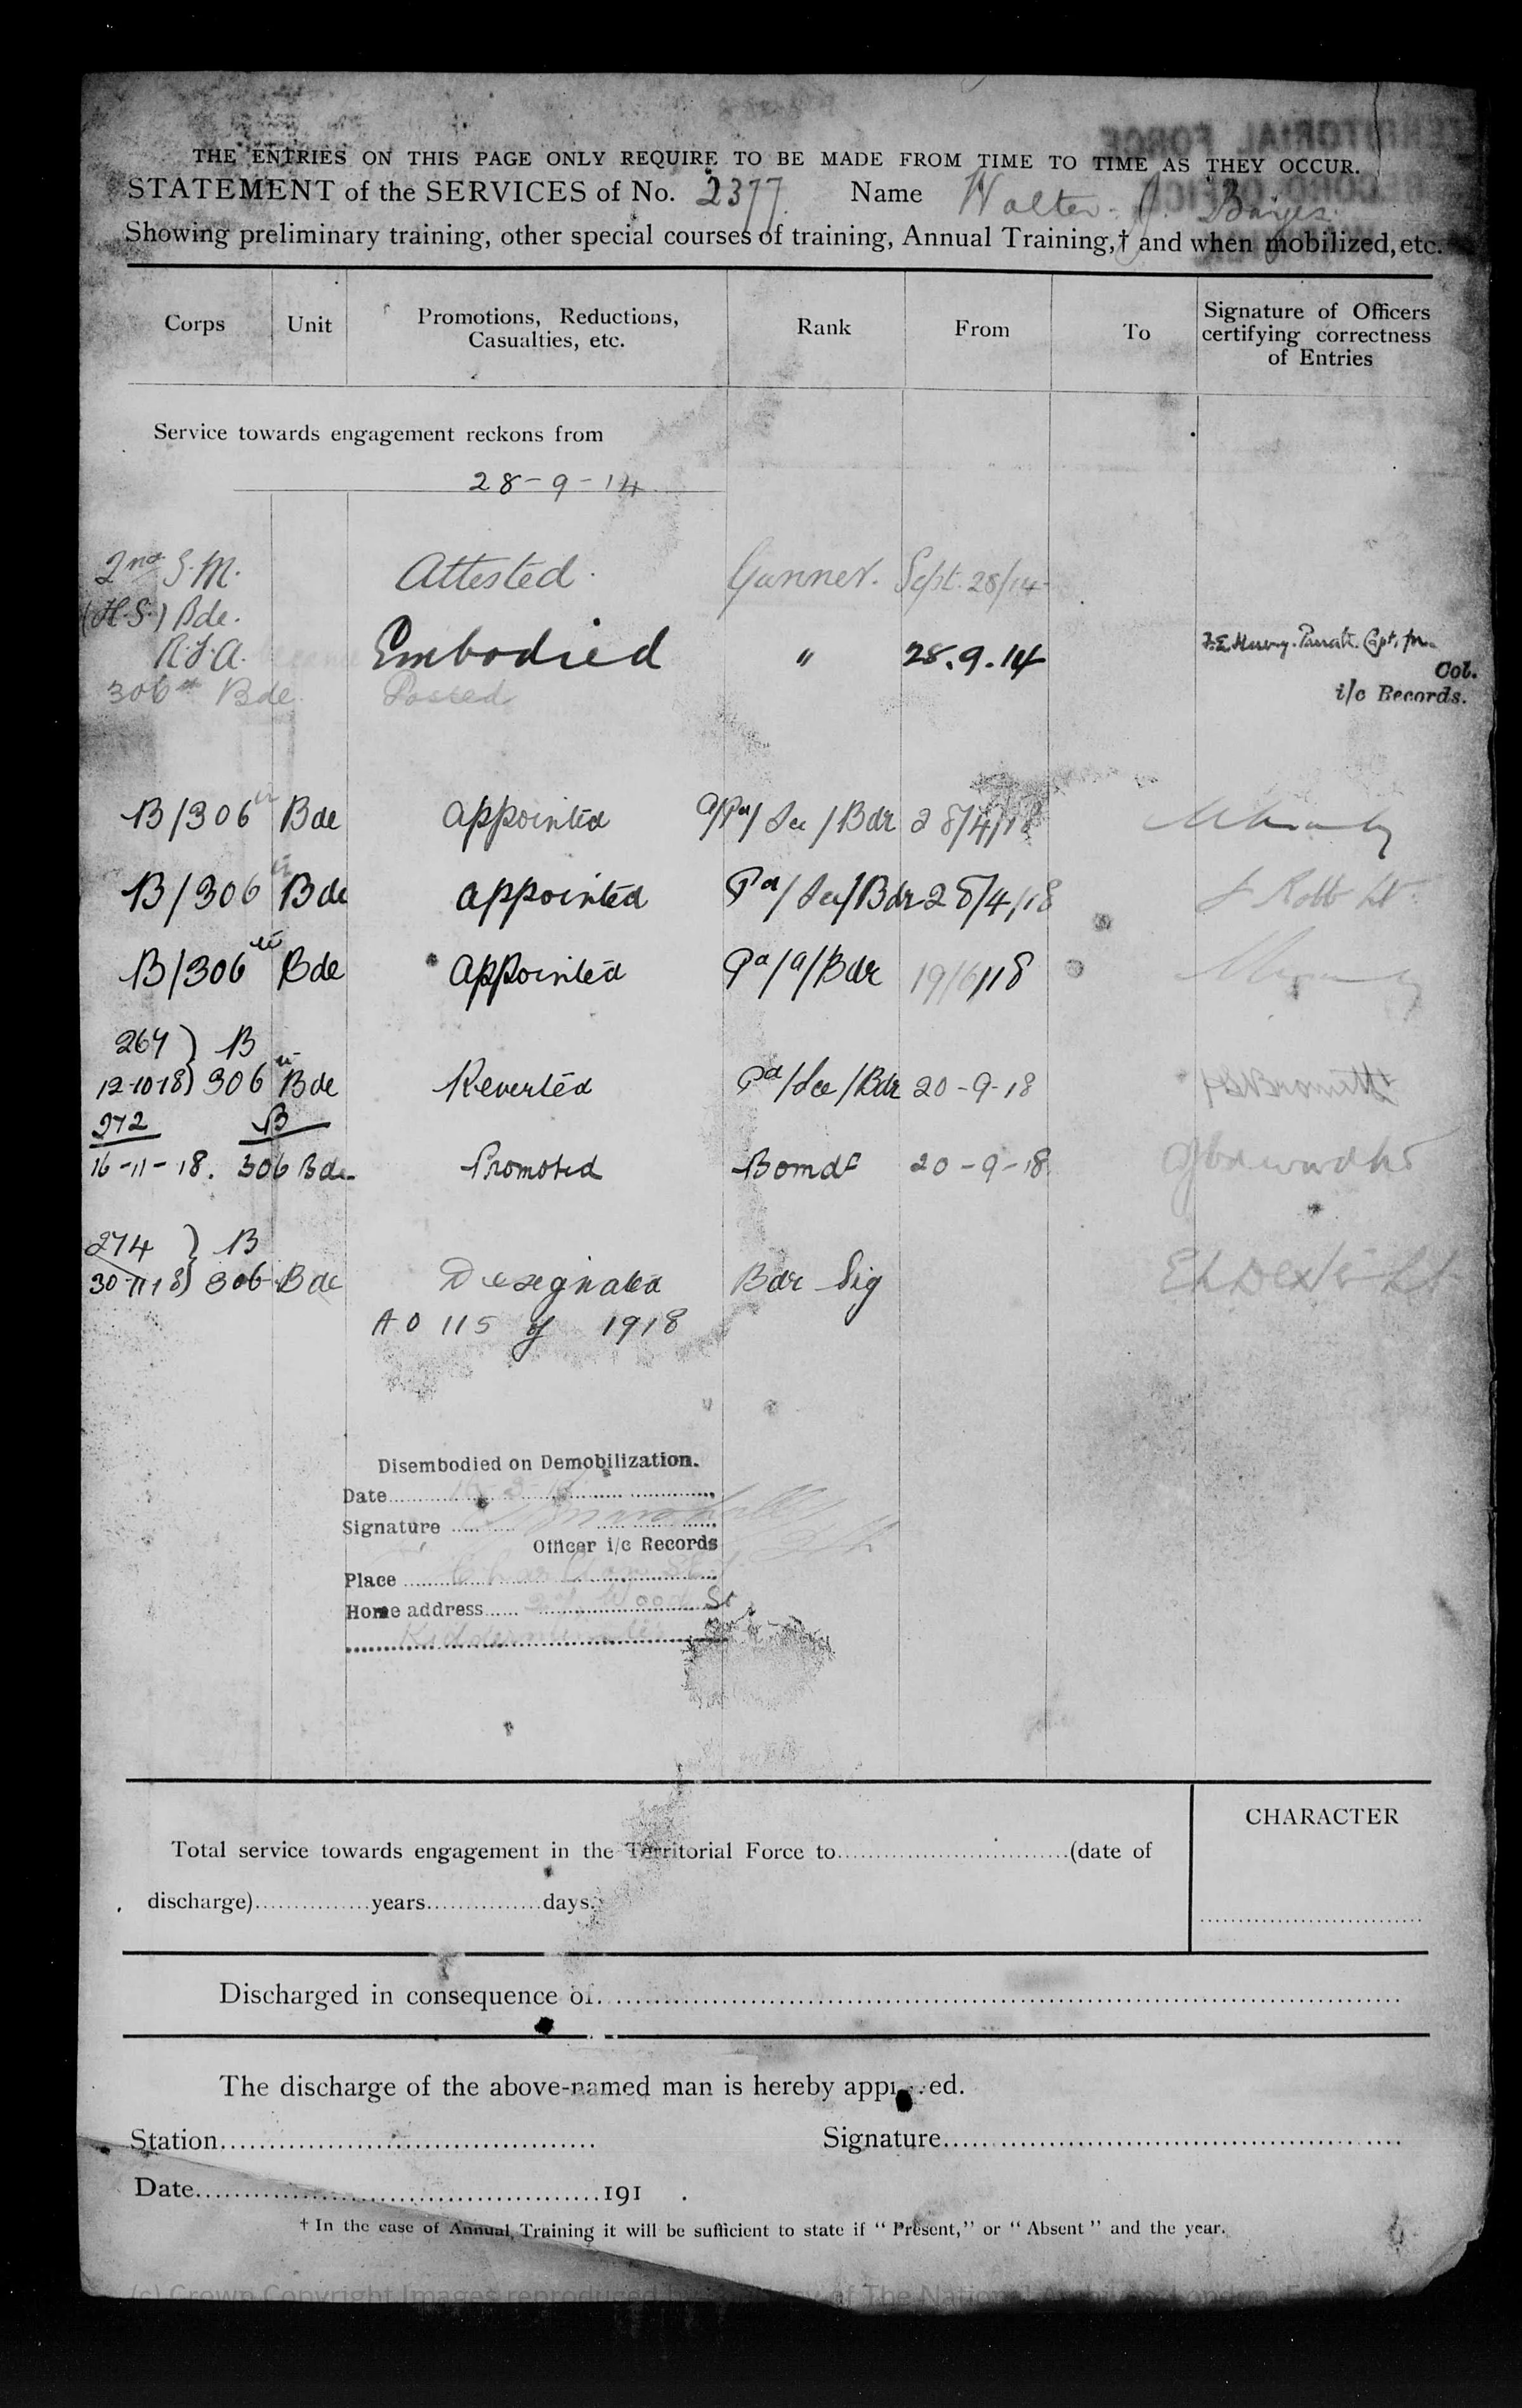 THE ENTRIES ON THIS PAGE ONLY REQUIRE TO BE MADE FROM TIME TO TIME AS THEY OCCUR.
STATEMENT of the SERVICES of No. 2377. Name Walter. J.
Showing preliminary training, other special courses of training, Annual Training,† and when mobilized, etc.
Corps Unit Promotions, Reductions, Casualties, etc. Rank From To Signature of Officers certifying correctness of Entries
Service towards engagement reckons from
28-9-14
2nd S.M. Attested. Gunner. Sept. 28/14
(H.S.) Bde.
R.F.A. Embodied " 28.9.14 Capt. for
Col.
306 Bde. Posted i/c Records.
B/306 Bde appointed Bdr 28/4/18
B/306 Bde appointed Pd/ /Bdr 28/4/18
B/306 Bde appointed Pd/a/Bdr 19/6/18
267 ) B
12-10-18) 306 Bde Reverted Pd/ /Bdr 20-9-18
272 B
16-11-18. 306 Bde Promoted Bomdr 20-9-18
274 ) B
30-11-18) 306 Bde Designated Bdr Sig
A O 115 of 1918
Disembodied on Demobilization.
Date
Signature
Officer i/c Records
Place
Home address Wood St
Kidderminster
Total service towards engagement in the Territorial Force to (date of
CHARACTER
discharge) years days.
Discharged in consequence of
The discharge of the above-named man is hereby app ed.
Station Signature
Date 191 .
† In the case of Annual Training it will be sufficient to state if "Present," or "Absent" and the year.
(c) Crown Copyright Images reproduced by of The National Archives, London,